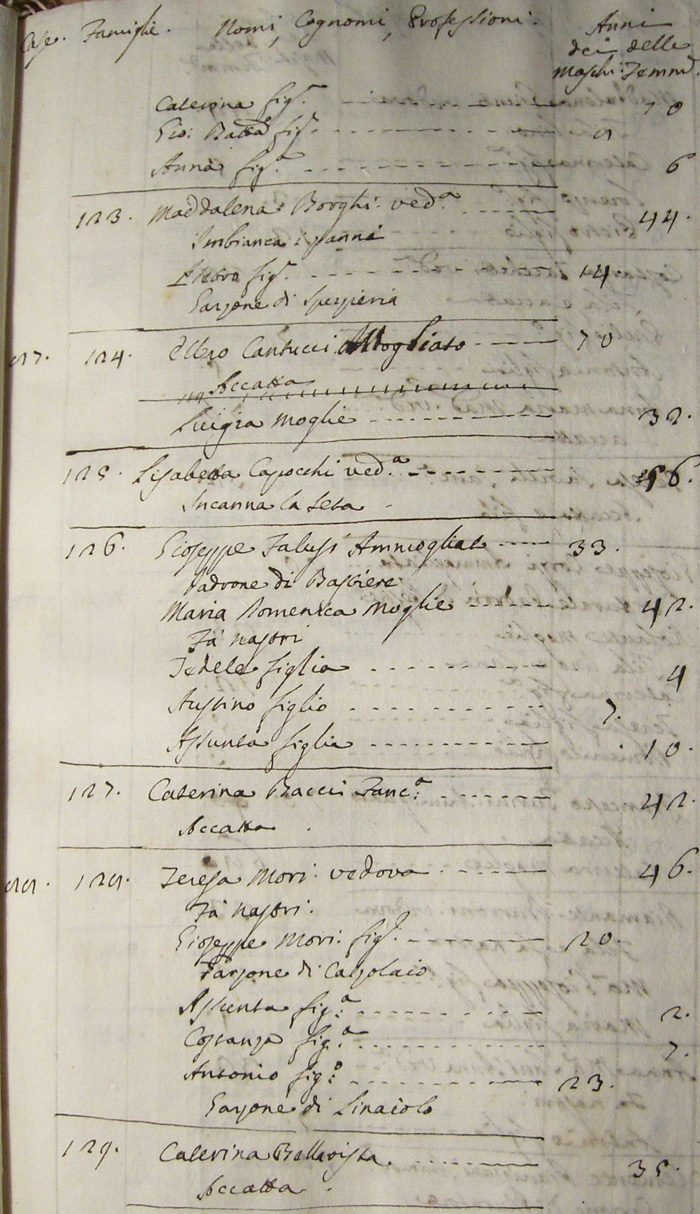 Case. Famiglie. Nomi, Cognomi, Professioni. Anni
dei delle
Maschi. Femm.
Caterina fig.ª 10
Gio: Batta fig.º
Anna fig.ª 6
123. Maddalena Borghi ved.ª 44.
Imbianca i panni
Pietro fig.º 14
Garzone di Spezieria
124. Cantucci Ammogliato 70
Accatta
Luigia moglie 32.
125. Lisabetta Capocchi ved.ª 56.
Incanna la seta
126. Gioseppe Falusi Ammogliat 33.
Padrone di
Maria Domenica Moglie 42.
Fà nastri
Fedele figlia 4
Agustino figlio 7.
Assunta figlia 10.
127. Caterina Bacci Fanc.ª 42.
Accatta
Teresa Mori vedova 46.
Fà nastri.
Gioseppe Mori fig.º 20.
Garzone di Calzolaio
Assunta fig.ª 2.
Costanza fig.ª 7.
Antonio fig.º 23.
Garzone di Linaiolo
129. Caterina Bellavista. 35.
Accatta